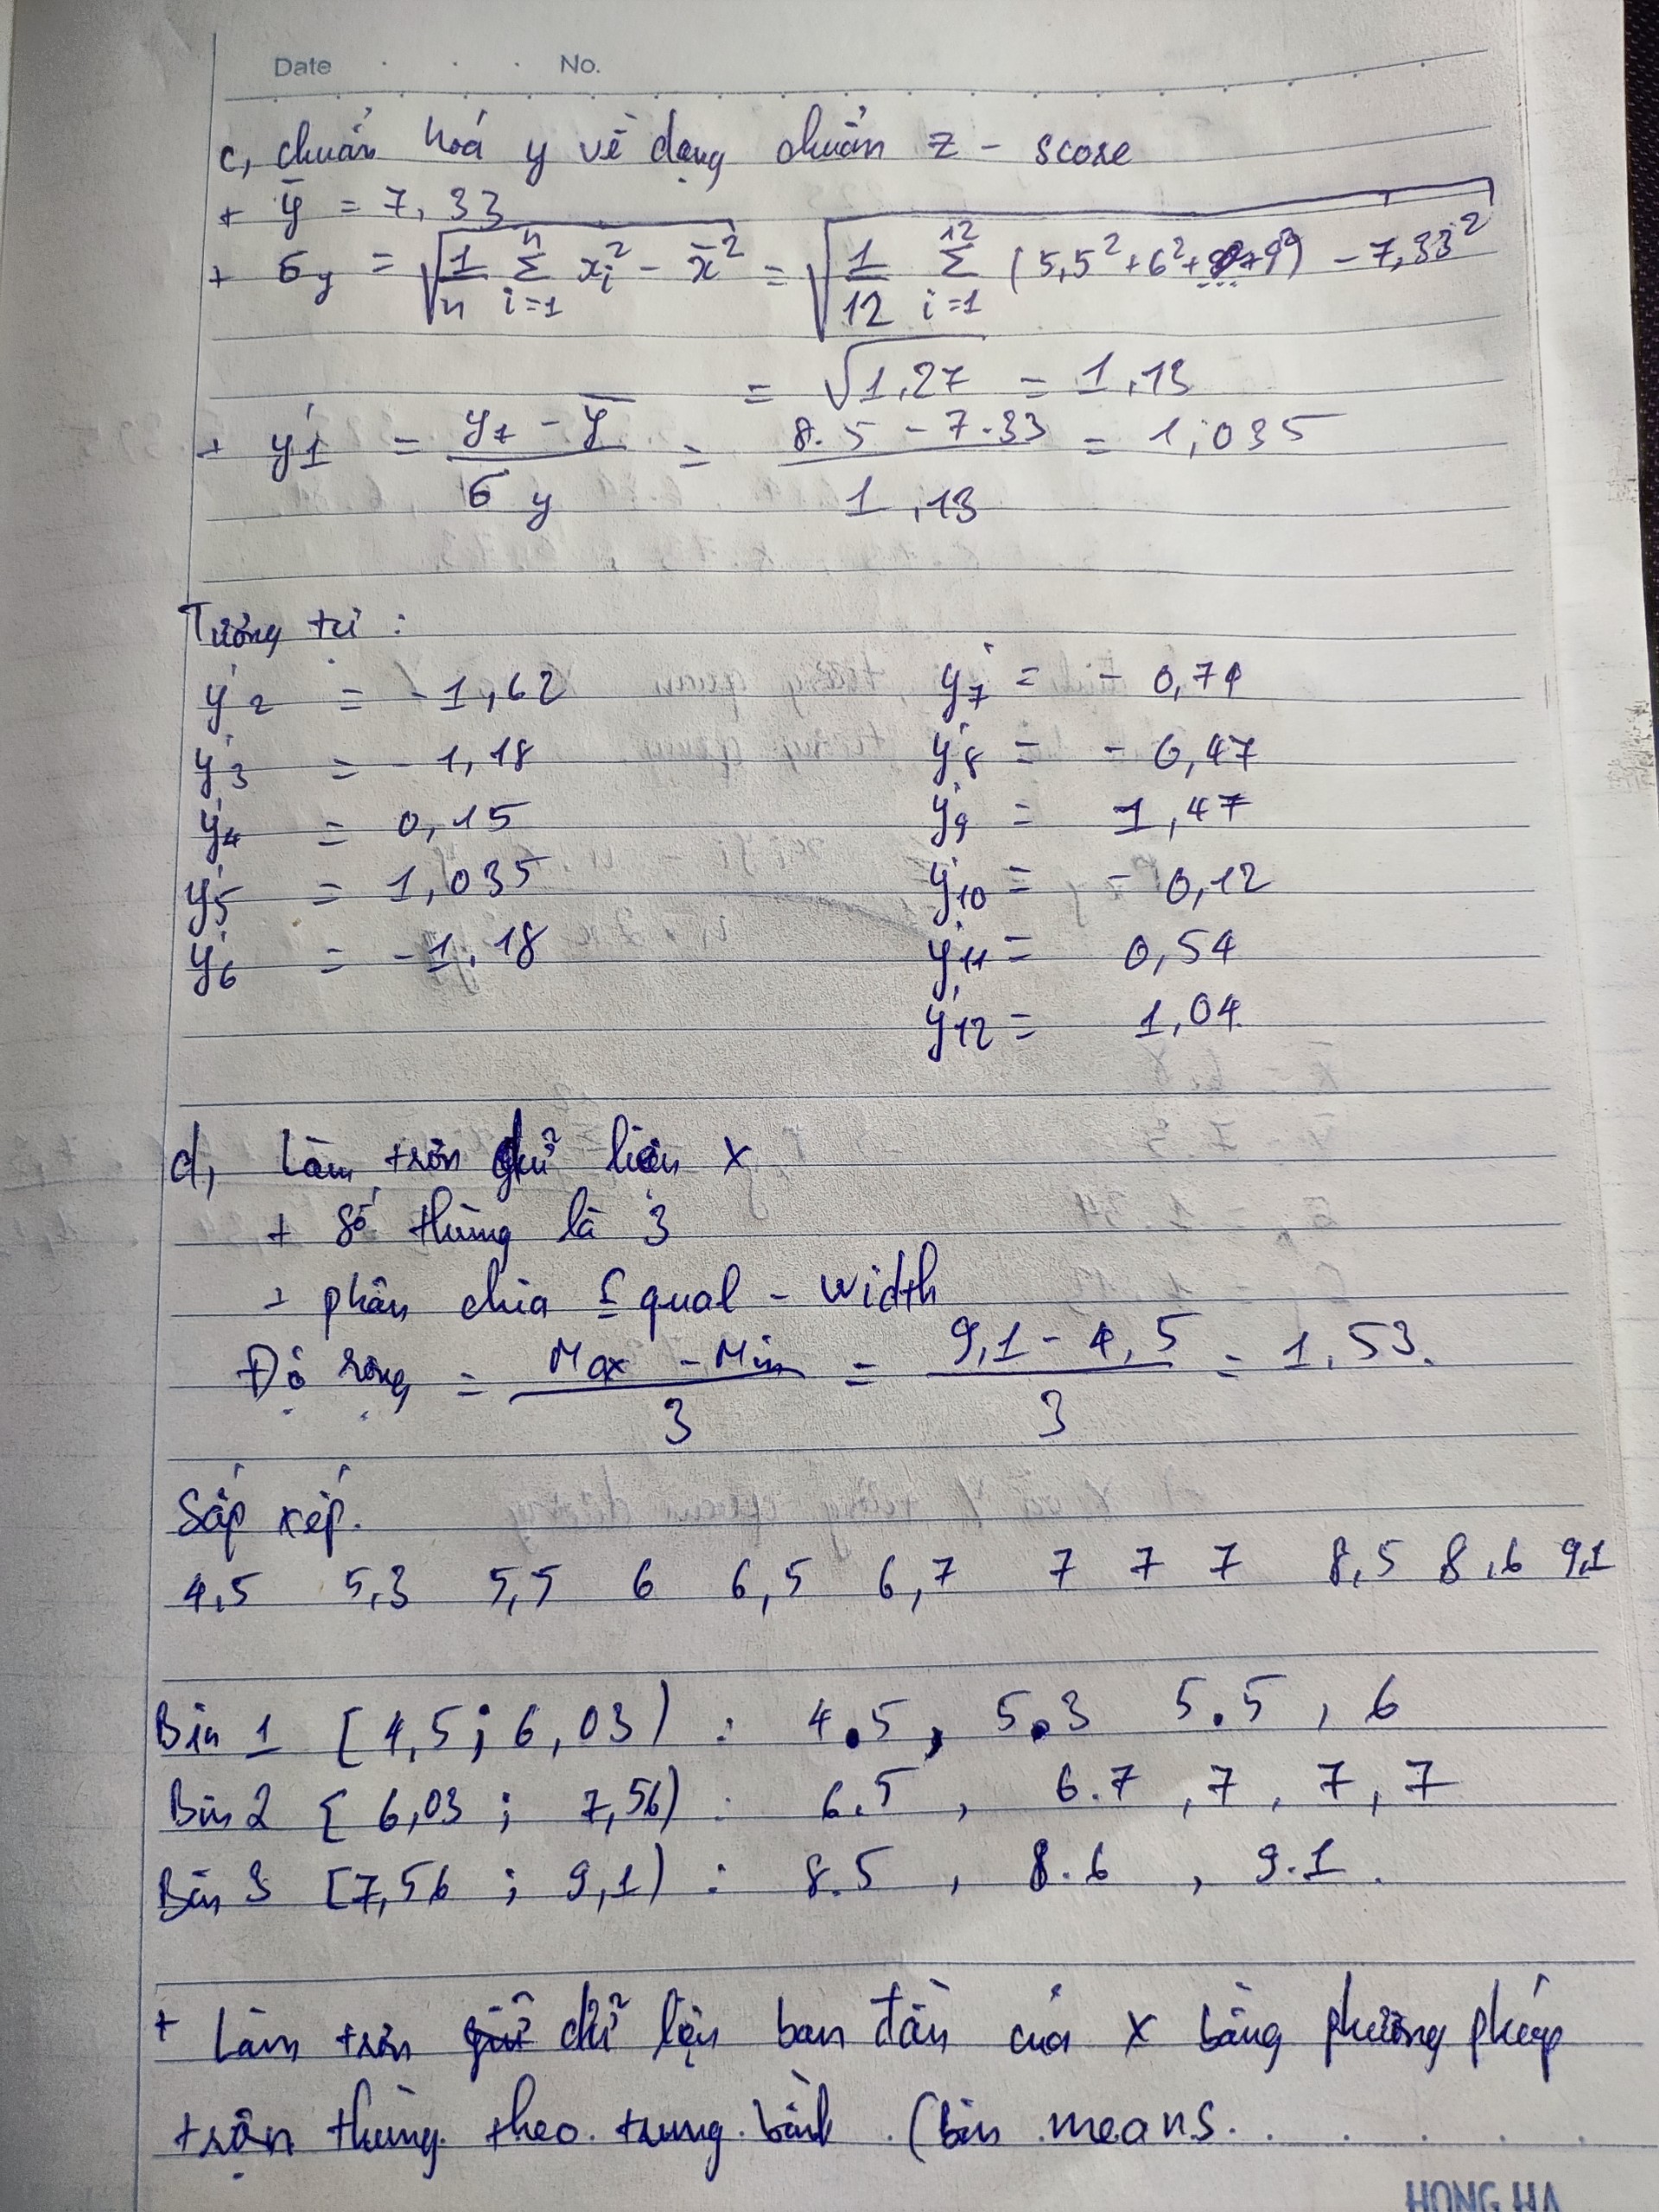 Date No.
c, chuẩn hoá y về dạng chuẩn z - score
+ ȳ = 7,33
+ σy = √(1/n Σ i=1 n xi² - x̄²) = √(1/12 Σ i=1 12 (5,5² + 6² + ... + 9²) - 7,33²)
= √1,27 = 1,13
+ y'1 = (y1 - ȳ)/σy = (8.5 - 7.33)/1,13 = 1,035
Tương tự :
y'2 = -1,62 y'7 = - 0,74
y'3 = - 1,18 y'8 = - 0,47
y'4 = 0,15 y'9 = 1,47
y'5 = 1,035 y'10 = - 0,12
y'6 = -1,18 y'11 = 0,54
y'12 = 1,04
d, Làm trơn dữ liệu x
+ Số thùng là 3
+ phân chia Equal - width
Độ rộng = (Max - Min)/3 = (9,1 - 4,5)/3 = 1,53.
Sắp xếp.
4,5 5,3 5,5 6 6,5 6,7 7 7 7 8,5 8,6 9,1
Bin 1 [4,5 ; 6,03) : 4.5, 5.3 5.5, 6
Bin 2 [6,03 ; 7,56) : 6.5, 6.7, 7, 7, 7
Bin 3 [7,56 ; 9,1) : 8.5, 8.6, 9.1.
+ Làm trơn dữ liệu ban đầu của x bằng phương pháp
trộn thùng theo trung bình (bin means.
HONG HA